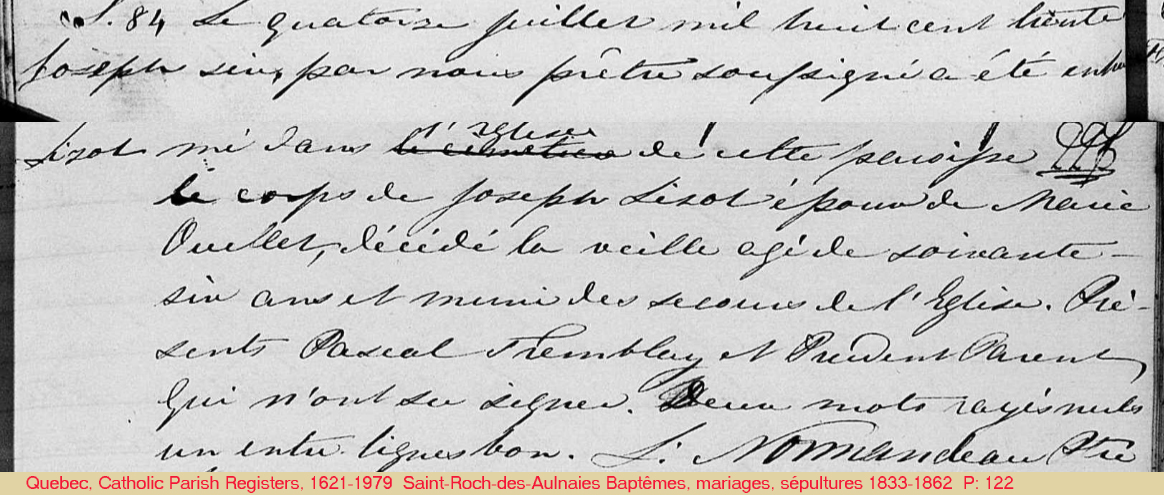 S. 84 Le quatorze juillet mil huit cent trente
Joseph six, par nous prêtre soussigné a été inhu
Lizot mé dans l'église le cimetière de cette paroisse
le corps de Joseph Lizot époux de Marie
Ouellet, décédé la veille agé de soixante-
six ans et muni des secours de l'Eglise. Pré-
sents Pascal Tremblay et Prudent Parent,
qui n'ont su signer. Deux mots rayés nuls
un entre lignes bon. L. Normandeau Ptre
Quebec, Catholic Parish Registers, 1621-1979 Saint-Roch-des-Aulnaies Baptêmes, mariages, sépultures 1833-1862 P: 122